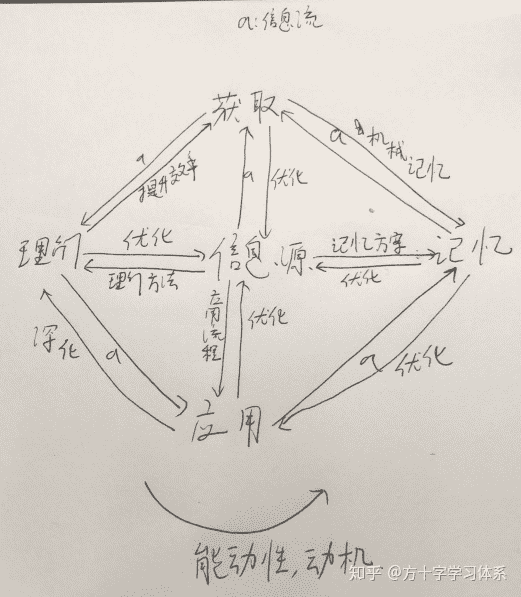 a:信息流
获取
a
提升效率
a
优化
a 机械记忆
理解
优化
理解方法
信息源
记忆方字
优化
记忆
深化
a
应用流程
优化
a
优化
应用
能动性,动机
知乎 @方十字学习体系